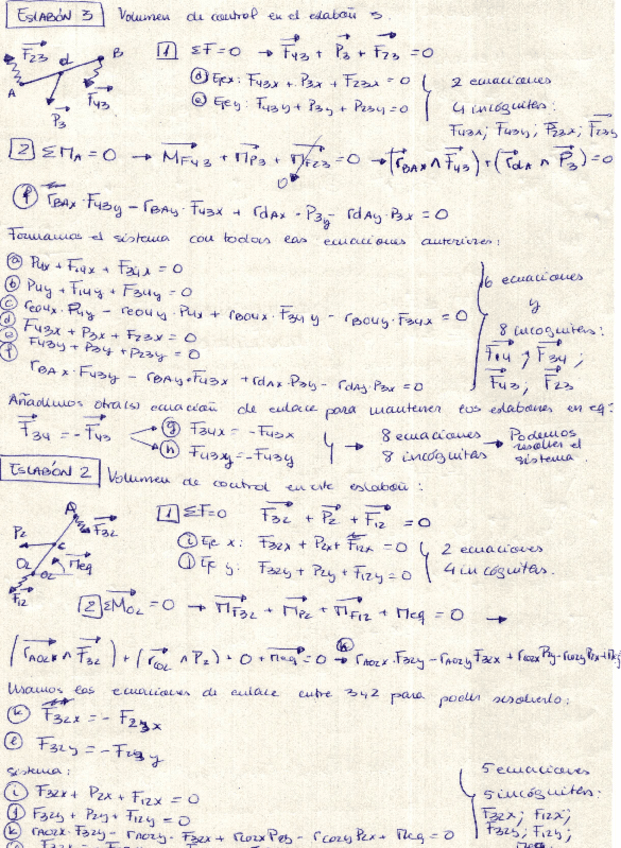 ESLABÓN 3 Volumen de control en el eslabón 3.
F23 d B
A P3 F43
1 ΣF=0 → F43 + P3 + F23 = 0
d Eje x: F43x + P3x + F23x = 0
e Eje y: F43y + P3y + F23y = 0
2 ecuaciones
4 incógnitas:
F43x; F43y; F23x; F23y
2 ΣMA = 0 → MF43 + MP3 + MF23 = 0 → (rBAx ∧ F43) + (rdA ∧ P3) = 0
0
f rBAx · F43y - rBAy · F43x + rdAx · P3y - rdAy · P3x = 0
Formamos el sistema con todas las ecuaciones anteriores:
a P4x + F14x + F34x = 0
b P4y + F14y + F34y = 0
c reO4x · P4y - reO4y · P4x + rBO4x · F34y - rBO4y · F34x = 0
d F43x + P3x + F23x = 0
e F43y + P3y + F23y = 0
f rBAx · F43y - rBAy · F43x + rdAx · P3y - rdAy · P3x = 0
6 ecuaciones
y
8 incógnitas:
F14 ; F34 ;
F43 ; F23
Añadimos otra(s) ecuación de enlace para mantener los eslabones en eq:
F34 = -F43
g F34x = -F43x
h F43y = -F43y
→ 8 ecuaciones
8 incógnitas
→ Podemos
resolver el
sistema.
ESLABÓN 2 Volumen de control en este eslabón:
A F32
P2 c
O2 O2 Meq
F12
1 ΣF=0 F32 + P2 + F12 = 0
i Eje x: F32x + P2x + F12x = 0
j Eje y: F32y + P2y + F12y = 0
2 ecuaciones
4 incógnitas.
2 ΣMO2 = 0 → MF32 + MP2 + MF12 + Meq = 0 →
(rAO2x ∧ F32) + (rcO2 ∧ P2) + 0 + Meq = 0 → k rAO2x · F32y - rAO2y F32x + rcO2x P2y - rcO2y P2x + Meq
Usamos las ecuaciones de enlace entre 3 y 2 para poder resolverlo:
k F32x = - F23x
l F32y = - F23y
Sistema:
i F32x + P2x + F12x = 0
j F32y + P2y + F12y = 0
k rAO2x · F32y - rAO2y · F32x + rcO2x P2y - rcO2y P2x + Meq = 0
5 ecuaciones
5 incógnitas:
F32x; F12x;
F32y; F12y;
Meq.